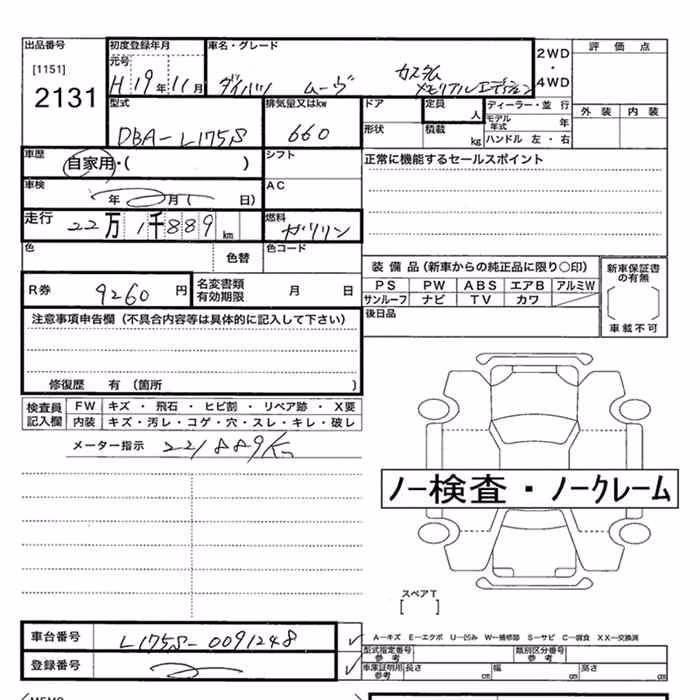 出品番号 初度登録年月 車名・グレード 2WD 評価点
[1151] 元号
2131 H 19年 11月 ダイハツ ムーヴ カスタム メモリアルエディション ・ 4WD
型式 排気量又はkw ドア 定員 人 ディーラー・並行 外装 内装
DBA-L175S 660 形状 積載 kg モデル年式 年
ハンドル 左・右
車歴 自家用・( ) シフト 正常に機能するセールスポイント
車検 年 月( 日) AC
走行 22万1千889km 燃料 ガソリン
色 色替 色コード
装備品(新車からの純正品に限り○印) 新車保証書の有無
R券 9260円 名変書類有効期限 月 日 PS PW ABS エアB アルミW
サンルーフ ナビ TV カワ
注意事項申告欄(不具合内容等は具体的に記入して下さい) 後日品 車載不可
修復歴 有(箇所 )
検査員 FW キズ・飛石・ヒビ割・リペア跡・X要
記入欄 内装 キズ・汚レ・コゲ・穴・スレ・キレ・破レ
メーター指示 221889km
ノー検査・ノークレーム
スペアT
[ ]
車台番号 L175S-0091248 A-キズ E-エクボ U-凹み W-補修跡 S-サビ C-腐食 XX-交換済
型式指定番号 参考 類別区分番号 参考
登録番号 車庫証明用 参考 長さ cm 幅 cm 高さ cm
MEMO